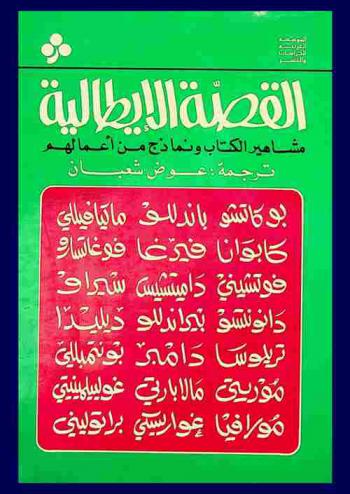 المؤسسة
العربية
للدراسات
والنشر
القصة الإيطالية
مشاهير الكتاب ونماذج من أعمالهم
ترجمة : عوض شعبان
بوكاتشو باندللو ماكيافيللي
كابوانا فيرغا فوغاتسارو
فوتشيني داميتشيس سيراو
دانونتسو بيراندللو ديليدا
تريلوسا دامبر بونتمبللي
موريتي مالابارتي
مورافيا غواريسكي براتوليني